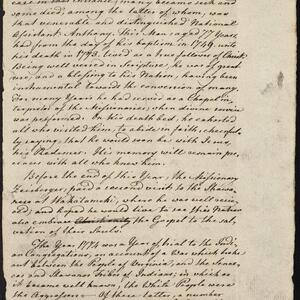 case in this instance, many became sick and
some died; among the latter of whom, was
that venerable and distinguished National
Assistant Anthony. This Man aged 77 Years,
had from the day of his baptism in 1749, until
his death in 1773. lived as a true follower of Christ.
Being well versed in Scripture, he was of great
use, and a blessing to his Nation, having been
instrumental towards the conversion of many.
For many Years he had served as a Chapel in-
terpreter of the Missionaries; which
was performed. On his death bed, he exhorted
all who visited him, to abide in faith, cheerful-
ly saying, that he would soon be with Jesus,
his Redeemer. His memory will remain pre-
cious with all who knew him.
Before the end of this Year, the Missionary
Zeisberger, paid a second visit to the Shawa-
nese at Wakatameki, where he was well receiv-
ed; and hoped he would live to see this Nation
also embrace Christianity the Gospel to the sal-
vation of their Souls.
The Year 1774 were a Year of trial to the Indi-
an Congregations, on account of a War which broke
out between the People of Virginia, and the Sene-
cas and Shawanos Tribes of Indians; in which, as
it became well known, the White People were
the Aggressors. Of these latter, a number